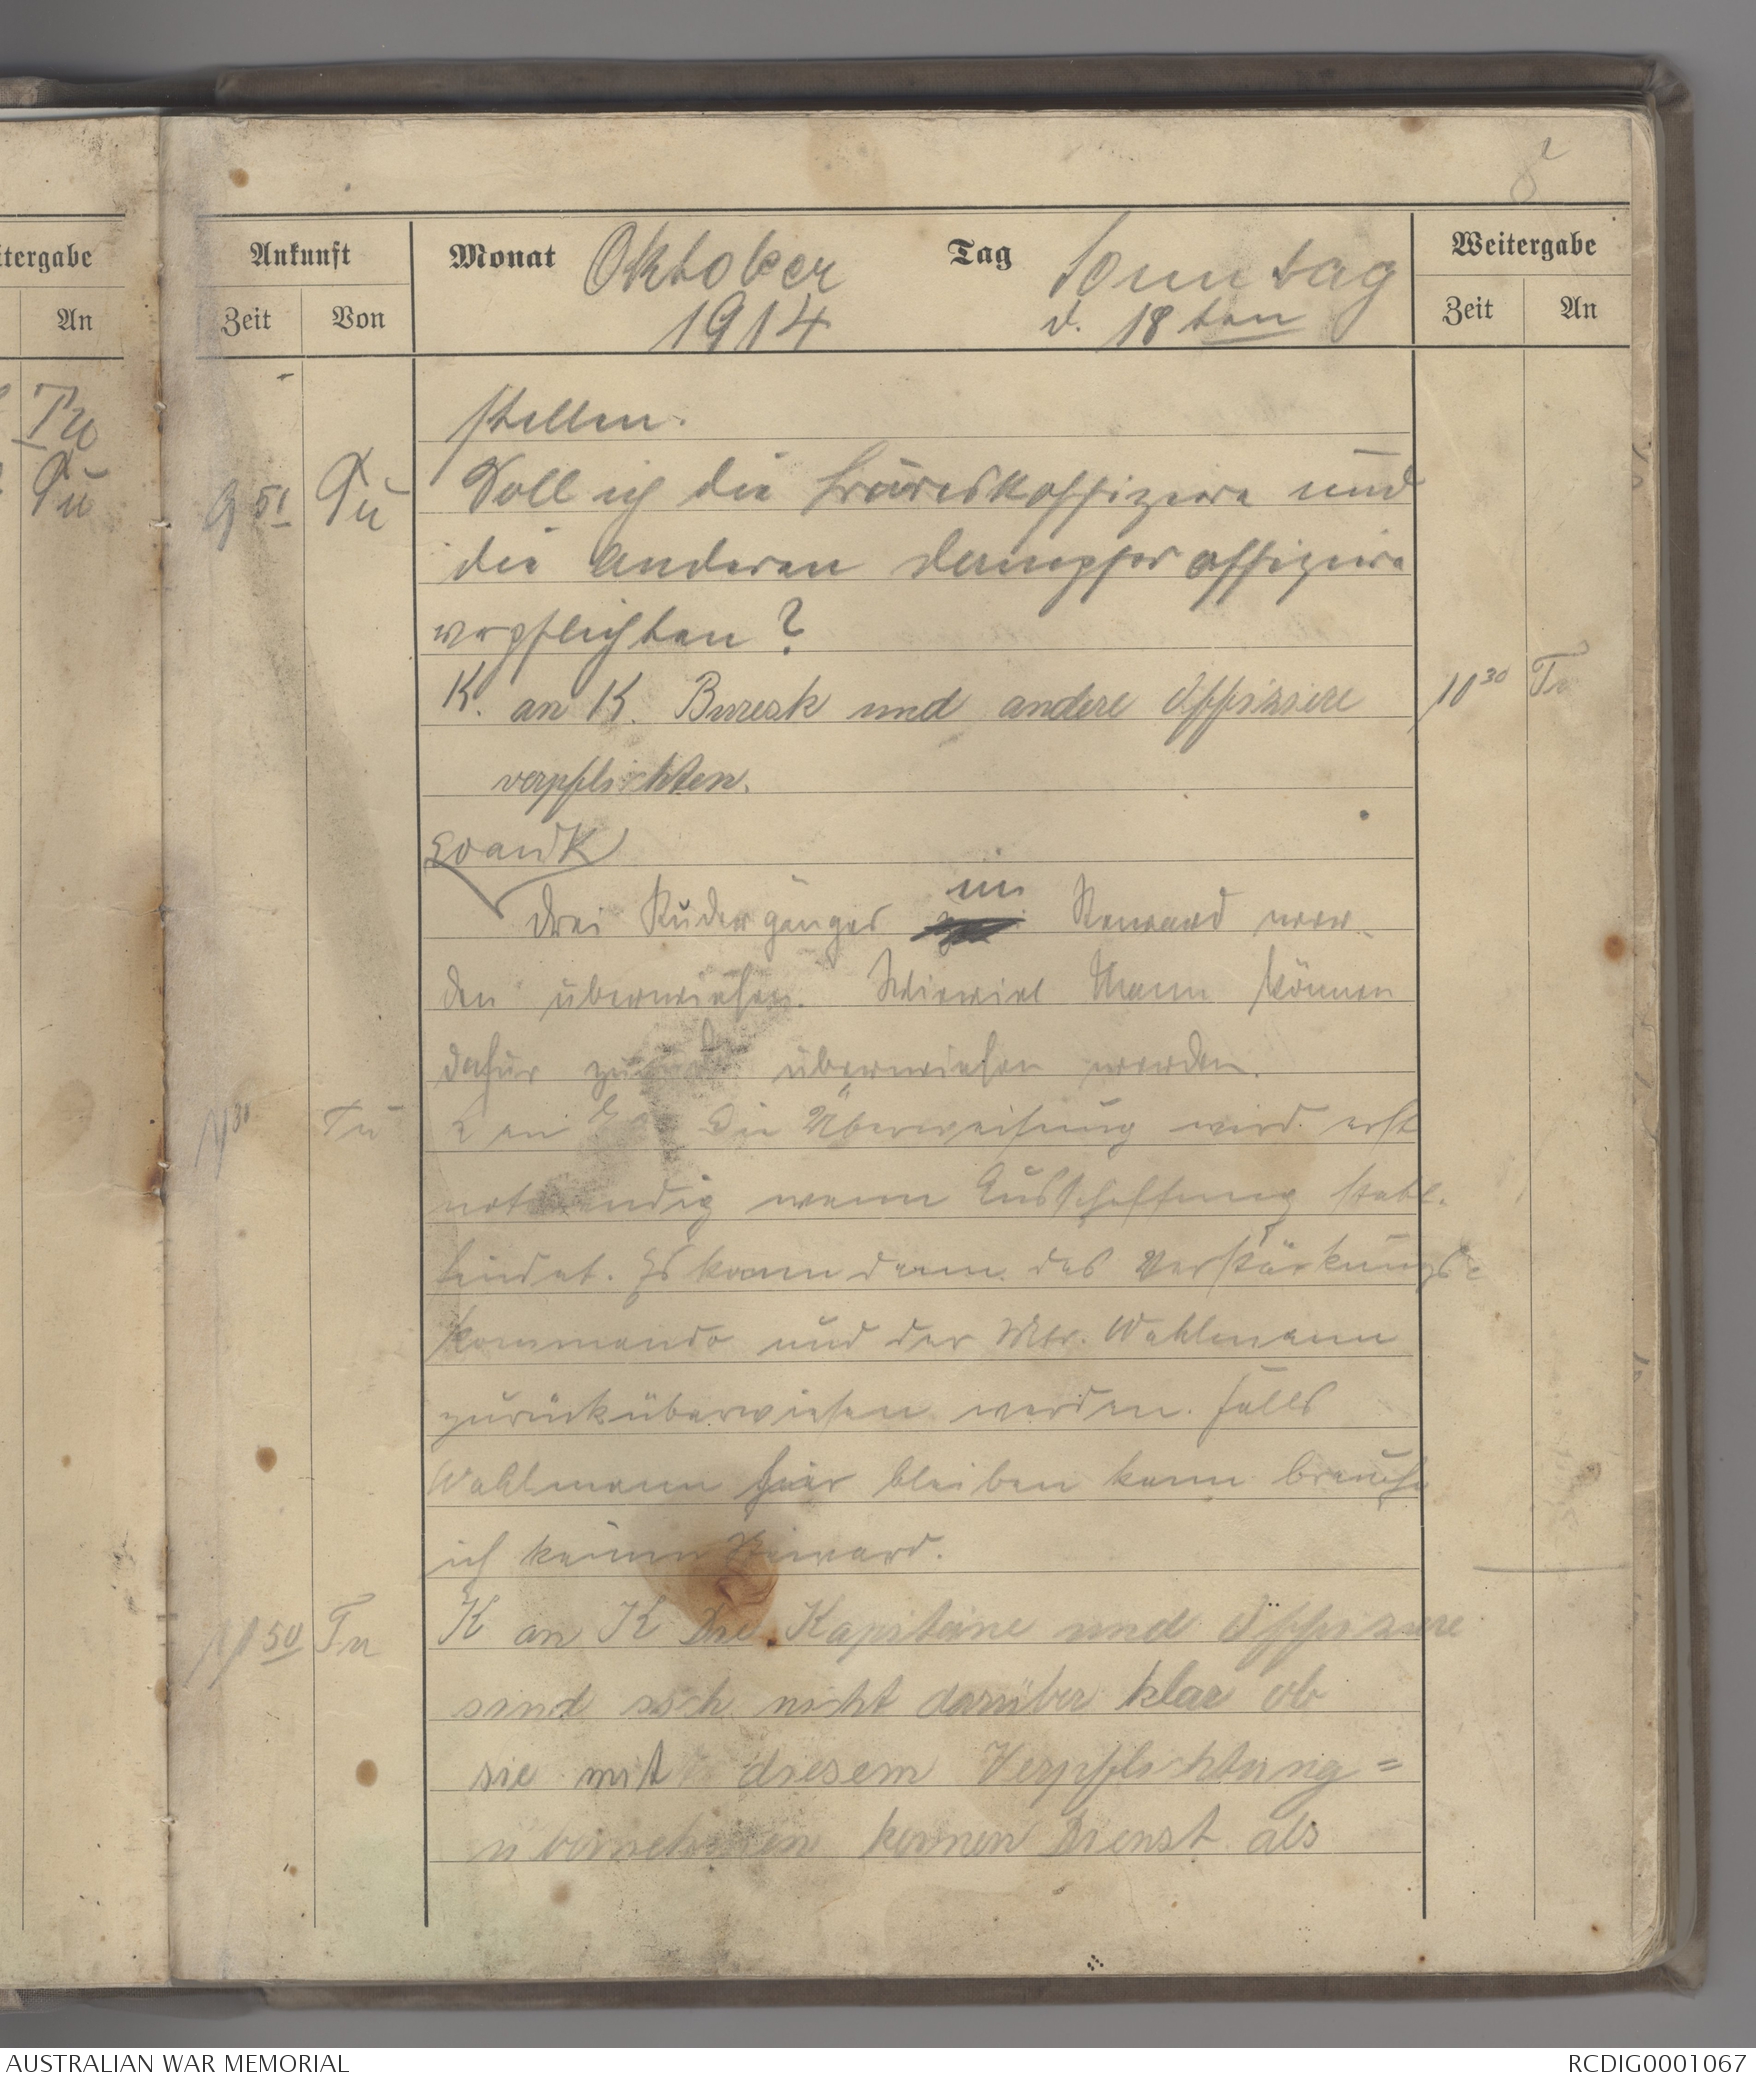 8
itergabe
An
Tu
Tu
Ankunft
Zeit Von
Monat Oktober
1914
Tag Sonntag
d. 18ten
Weitergabe
Zeit An
stellen.
9 51 Tu Soll ich die und
die anderen Dampfer offiziere
verpflichten?
K. an K. Buresk und andere Offiziere 10 30 Tu
verpflichten.
EO an K
Drei Rudergänger ein Steward wer-
den überwiesen. Wieviel Mann können
dafür überwiesen werden.
Tu K an Die Überweisung wird erst
notwendig wenn Ausschiffung statt-
findet. Es kann dann das Verstärkungs-
kommando und der Mtr. Wahlmann
zurücküberwiesen werden. Falls
Wahlmann hier bleiben kann brauche
ich keinen Steward.
11 50 Tu K an K Die Kapitäne und Offiziere
sind sich nicht darüber klar ob
sie mit diesem Verpflichtung=
übernehmen keinen Dienst als
AUSTRALIAN WAR MEMORIAL
RCDIG0001067